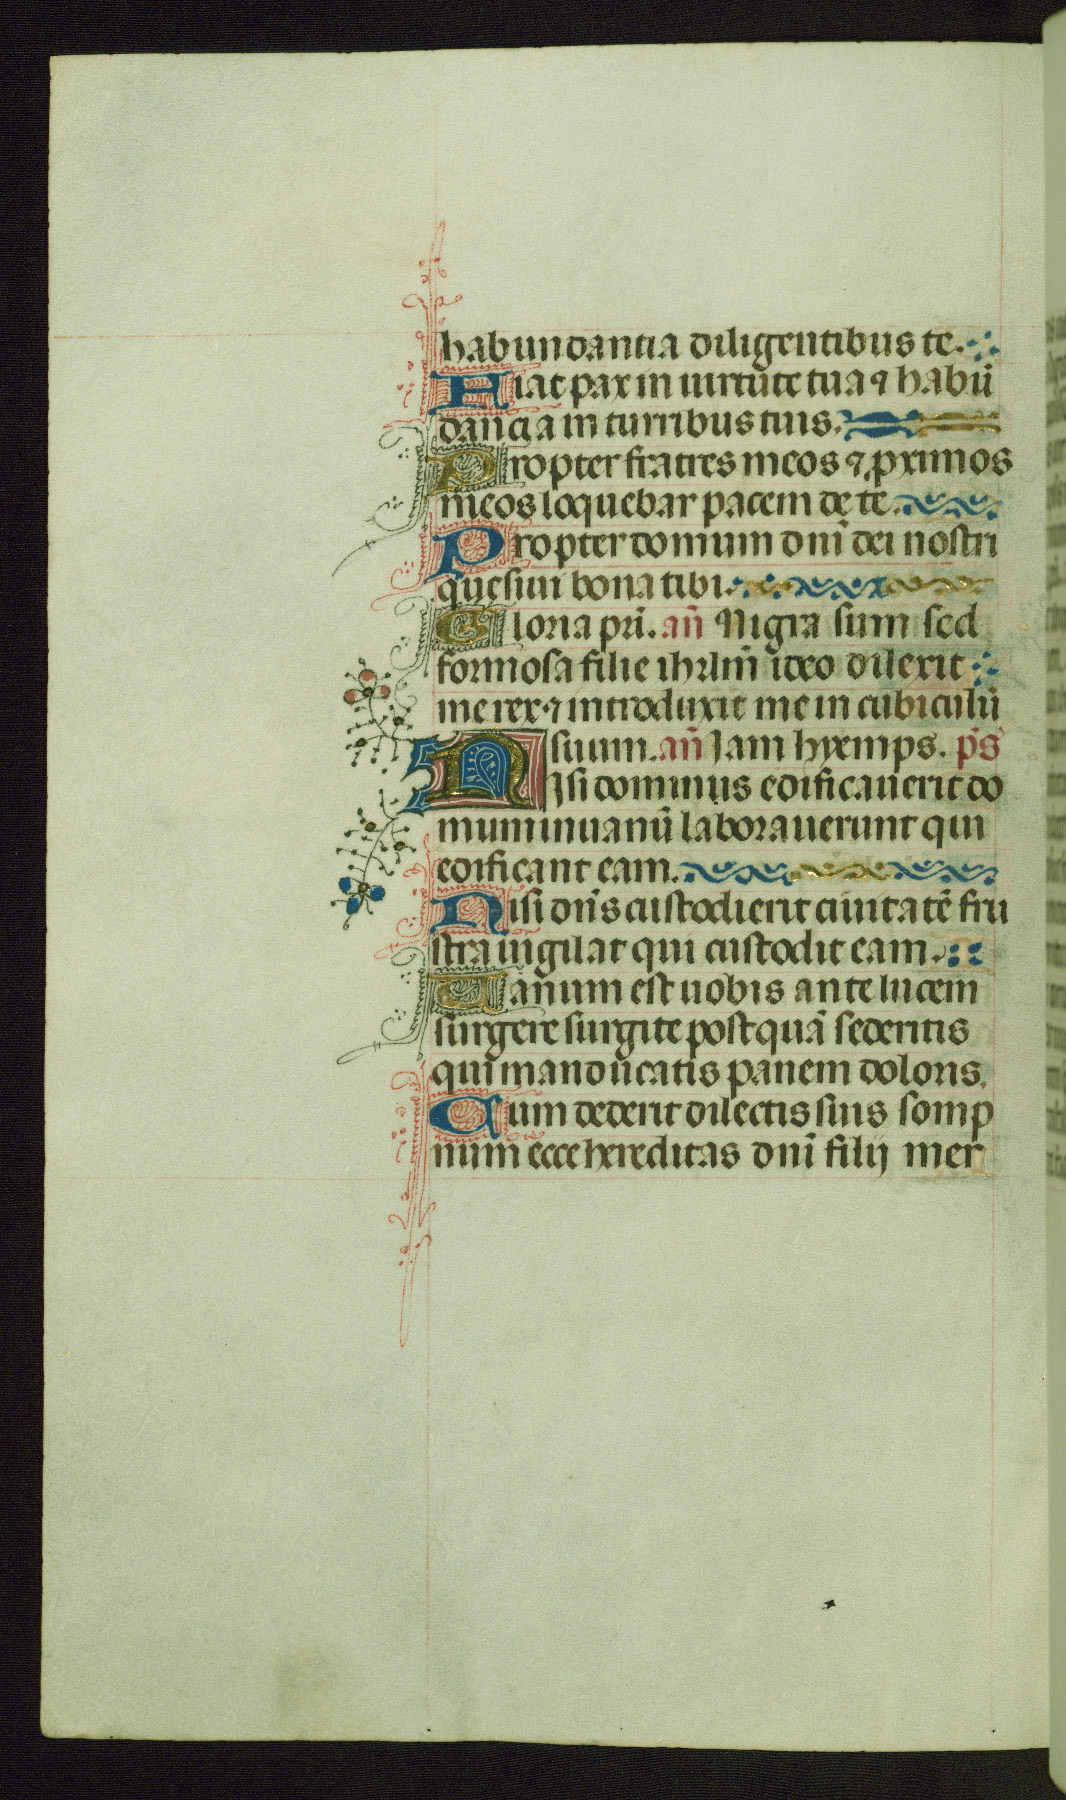 habundantia diligentibus te.
Fiat pax in uirtute tua ⁊ habū
dancia in turribus tuis.
Propter fratres meos ⁊ ꝓximos
meos loquebar pacem de te.
Propter domum dnī dei nostri
quesiui bona tibi.
Gloria pri̅. an̅ Nigra sum sed
formosa filie ihrl̅m ideo dilexit
me rex ⁊ introduxit me in cubiculū
suum. an̅ Iam hyemps. p̅s
Nisi dominus edificauerit do
mum inuanū laborauerunt qui
edificant eam.
Nisi dn̅s custodierit ciuitatē fru
stra uigilat qui custodit eam.
Uanum est uobis ante lucem
surgere surgite postquā sederitis
qui manducatis panem doloris.
Cum dederit dilectis suis somp
num ecce hereditas dnī filij mer